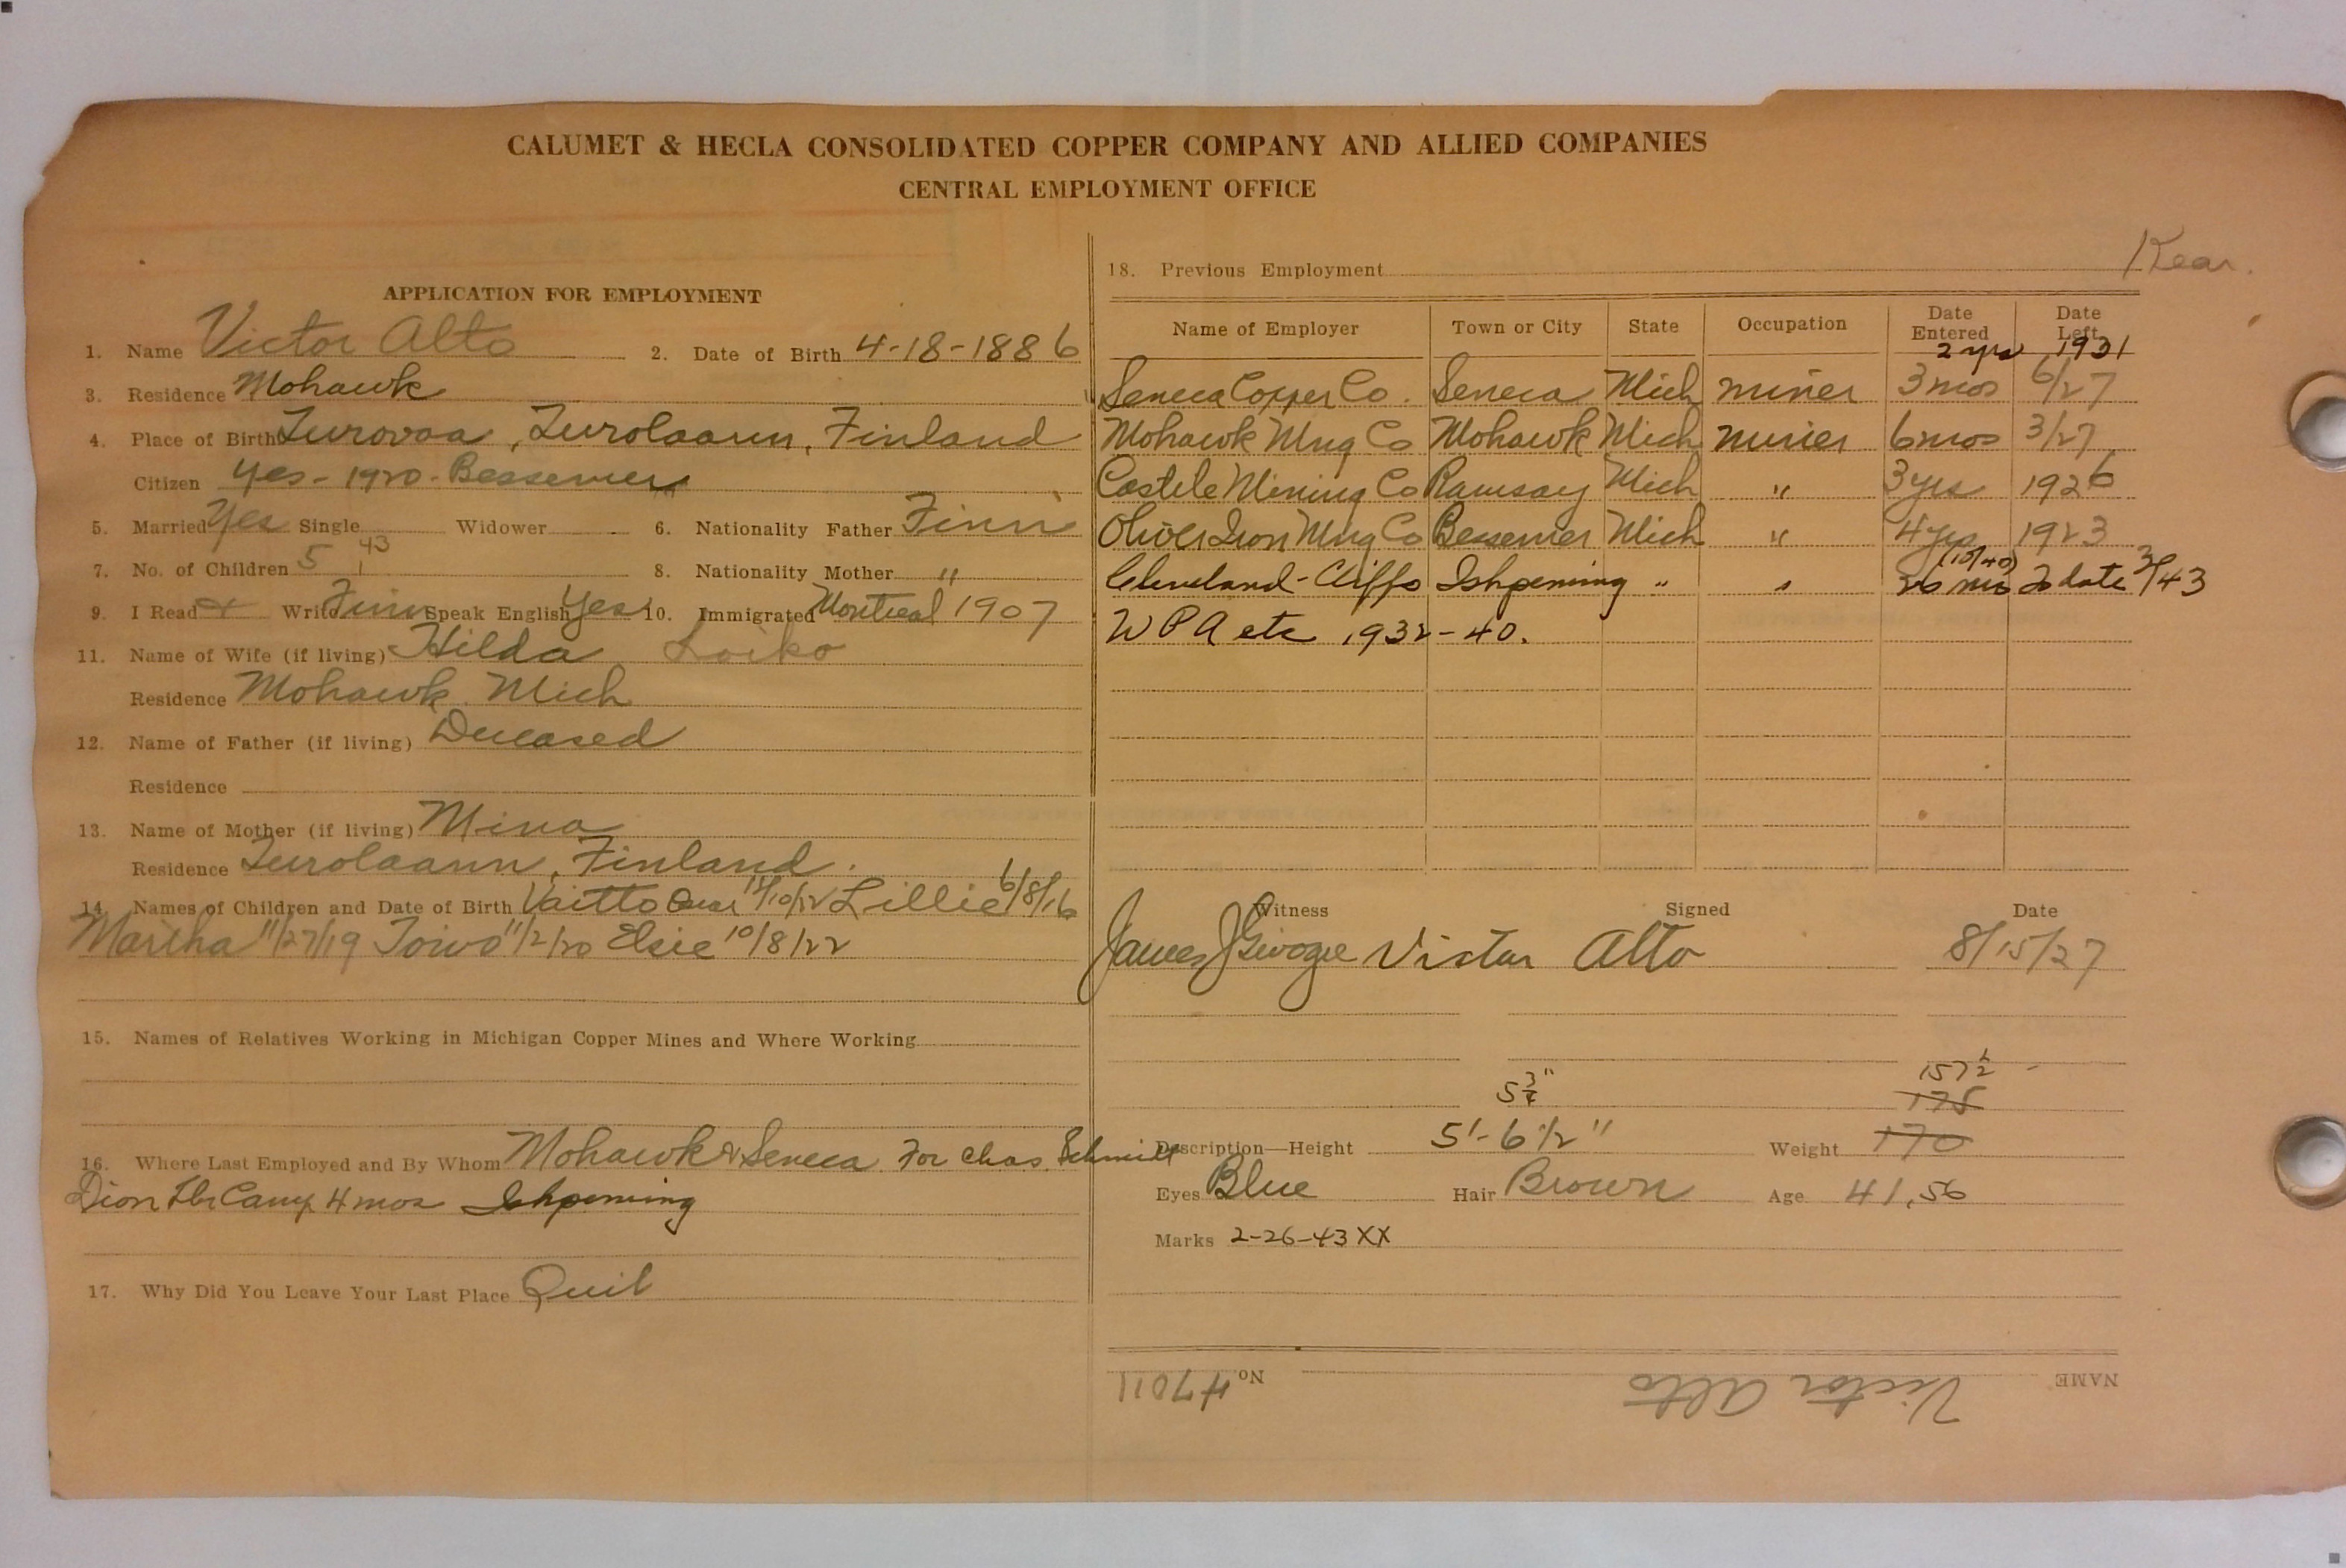 CALUMET & HECLA CONSOLIDATED COPPER COMPANY AND ALLIED COMPANIES
CENTRAL EMPLOYMENT OFFICE
APPLICATION FOR EMPLOYMENT
1. Name Victor Alto 2. Date of Birth 4-18-1886
3. Residence Mohawk
4. Place of Birth Finland
Citizen Yes - 1920 - Bessemer
5. Married Yes Single Widower 6. Nationality Father Finn
7. No. of Children 5 1 43 8. Nationality Mother "
9. I Read & Write Finn Speak English Yes 10. Immigrated Montreal 1907
11. Name of Wife (if living) Hilda Loiko
Residence Mohawk Mich
12. Name of Father (if living) Deceased
Residence
13. Name of Mother (if living) Mina
Residence Finland.
14. Names of Children and Date of Birth Lillie 6/8/16
Martha 11/27/19 Toivo 11/2/20 Elsie 10/8/22
15. Names of Relatives Working in Michigan Copper Mines and Where Working
16. Where Last Employed and By Whom Mohawk & Seneca For Chas. Schmidt
Dion Lbr Camp 4 mos Ishpeming
17. Why Did You Leave Your Last Place Quit
Kear.
18. Previous Employment
Name of Employer Town or City State Occupation Date Entered Date Left
2 yrs 1931
Seneca Copper Co. Seneca Mich miner 3 mos 6/27
Mohawk Mng Co Mohawk Mich miner 6 mos 3/27
Castile Mining Co Ramsay Mich " 3 yrs 1926
Oliver Iron Mng Co Bessemer Mich " 4 yrs 1923
(10/40)
Cleveland-Cliffs Ishpeming " " 26 mos To date 2/43
W P A etc 1932-40.
Witness Signed Date
James J Victor Alto 8/15/27
157 1/2
5 3/4" 175
Description—Height 5'-6 1/2" Weight 170
Eyes Blue Hair Brown Age 41, 56
Marks 2-26-43 XX
NAME Victor Alto No. 47011